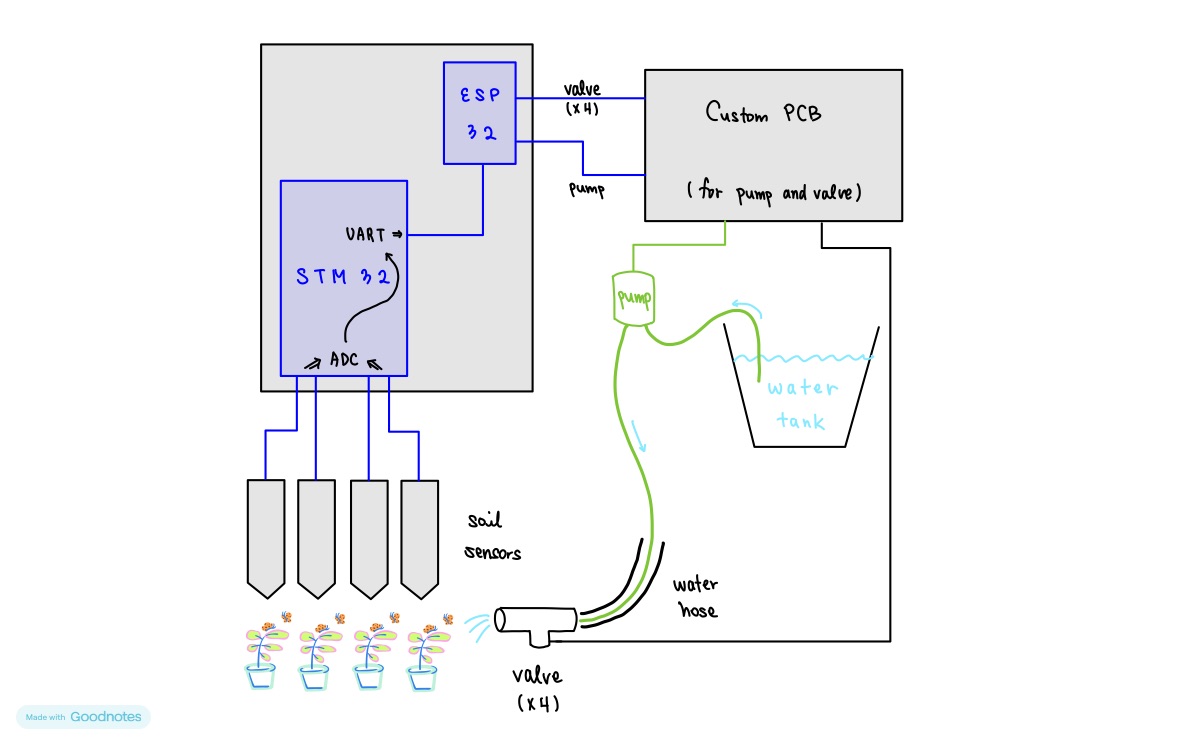 ESP
32
valve
(x4)
pump
Custom PCB
(for pump and valve)
UART ⇒
STM 32
ADC
pump
water
tank
soil
sensors
water
hose
valve
(x4)
Made with Goodnotes